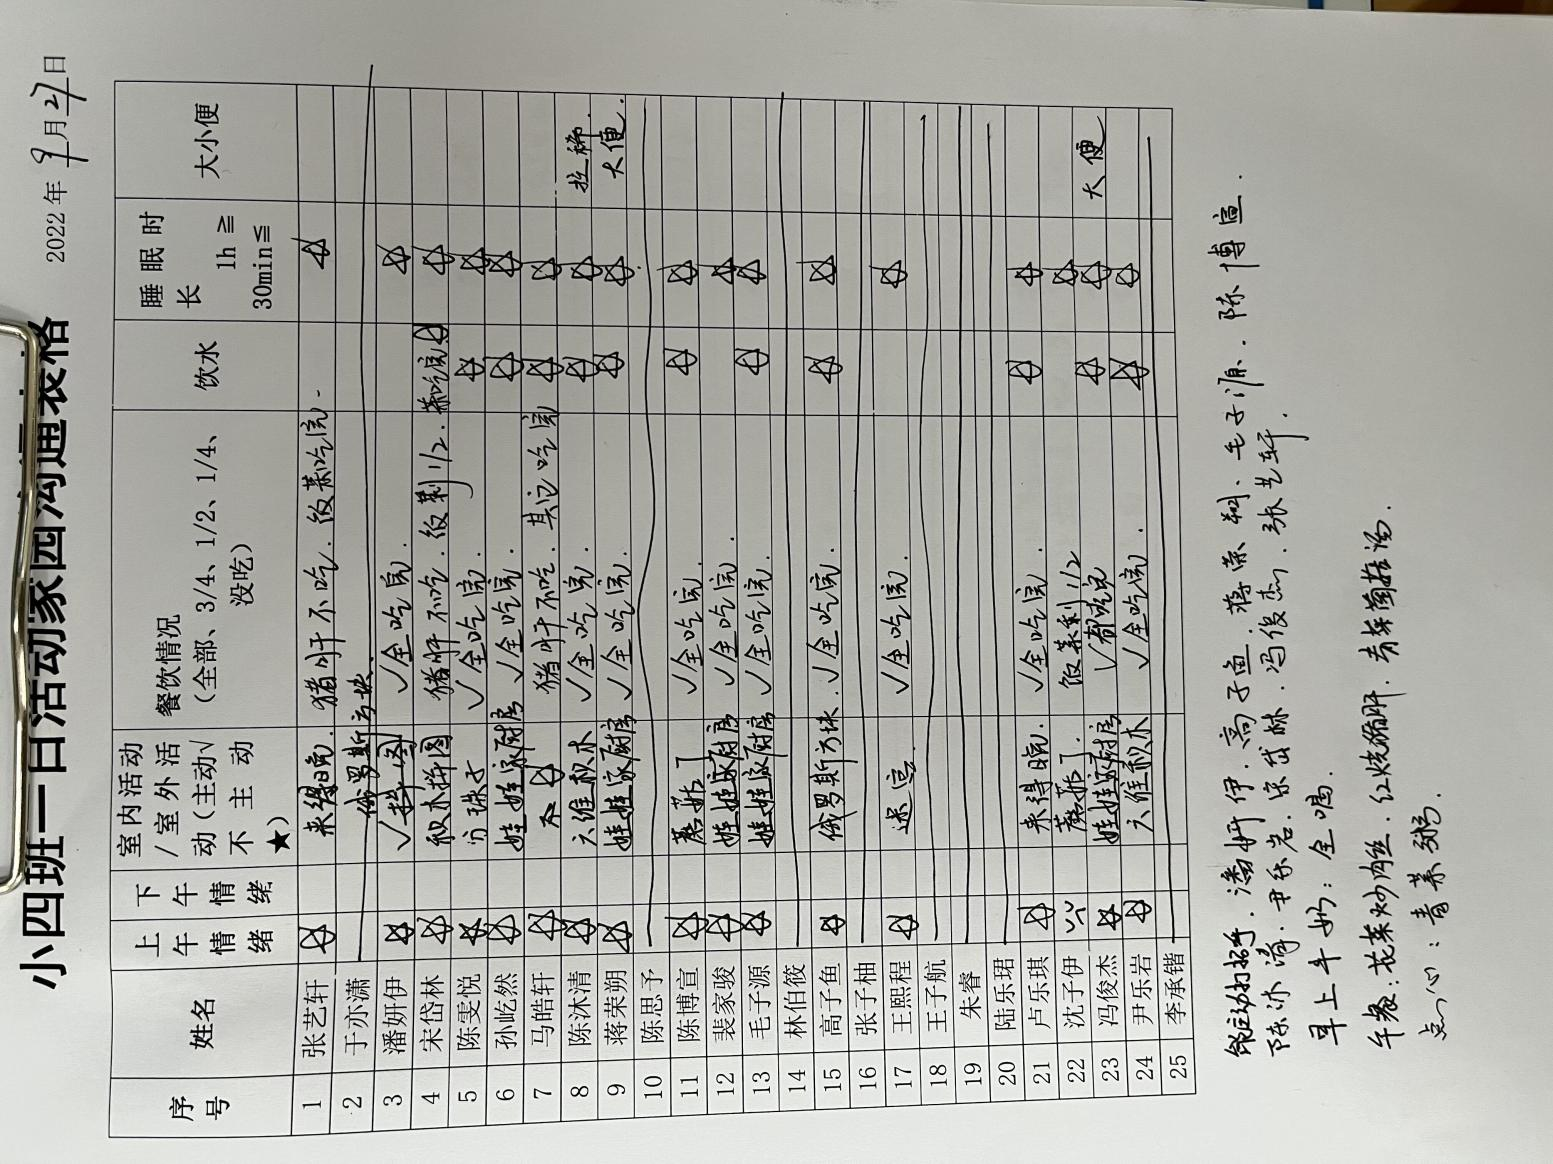 小四班一日活动家园沟通表格
2022 年 9 月 27 日
序号 姓名 上午情绪 下午情绪 室内活动/室外活动(主动√不主动★) 餐饮情况(全部、3/4、1/2、1/4、没吃) 饮水 睡眠时长 1h≧ 30min≦ 大小便
1 张艺轩 ☆ 来得晚. 猪肝不吃. 饭菜吃完. ☆
2 于亦潇 俄罗斯方块.
3 潘妍伊 ☆ √拼图 √全吃完. ☆
4 宋岱林 ☆ 积木拼图 猪肝不吃. 饭剩1/2. 菜吃完 ☆ ☆
5 陈雯悦 ☆ √全吃完. ☆ ☆
6 孙屹然 ☆ 娃娃家厨房 √全吃完. ☆ ☆
7 马皓轩 ☆ ☆ 猪肝不吃. 其它吃完 ☆ ☆
8 陈沐清 ☆ 六维积木 √全吃完. ☆ ☆ 拉稀.
9 蒋荣朔 ☆ 娃娃家厨房 √全吃完. ☆ ☆ 大便.
10 陈思予
11 陈博宣 ☆ 蘑菇丁 √全吃完. ☆ ☆
12 裴家骏 ☆ 娃娃家厨房 √全吃完. ☆
13 毛子源 ☆ 娃娃家厨房 √全吃完. ☆ ☆
14 林伯筱
15 高子鱼 ☆ 俄罗斯方块. √全吃完. ☆ ☆
16 张子柚
17 王熙程 ☆ 迷宫 √全吃完. ☆
18 王子航
19 朱睿
20 陆乐珺
21 卢乐琪 ☆ 来得晚. √全吃完. ☆ ☆
22 沈子伊 蘑菇丁. 饭菜剩1/2 ☆
23 冯俊杰 ☆ 娃娃家厨房 √都吃完 ☆ ☆ 大便
24 尹乐岩 ☆ 六维积木 √全吃完. ☆ ☆
25 李承锴
能主动打招呼. 潘妍伊. 高子鱼. 蒋荣朔. 毛子源. 陈博宣.
陈沐清. 尹乐岩. 宋岱林. 冯俊杰. 张艺轩.
早上牛奶: 全喝.
午餐: 花菜炒肉丝. 红烧猪肝. 青菜蘑菇汤.
点心: 青菜粥.